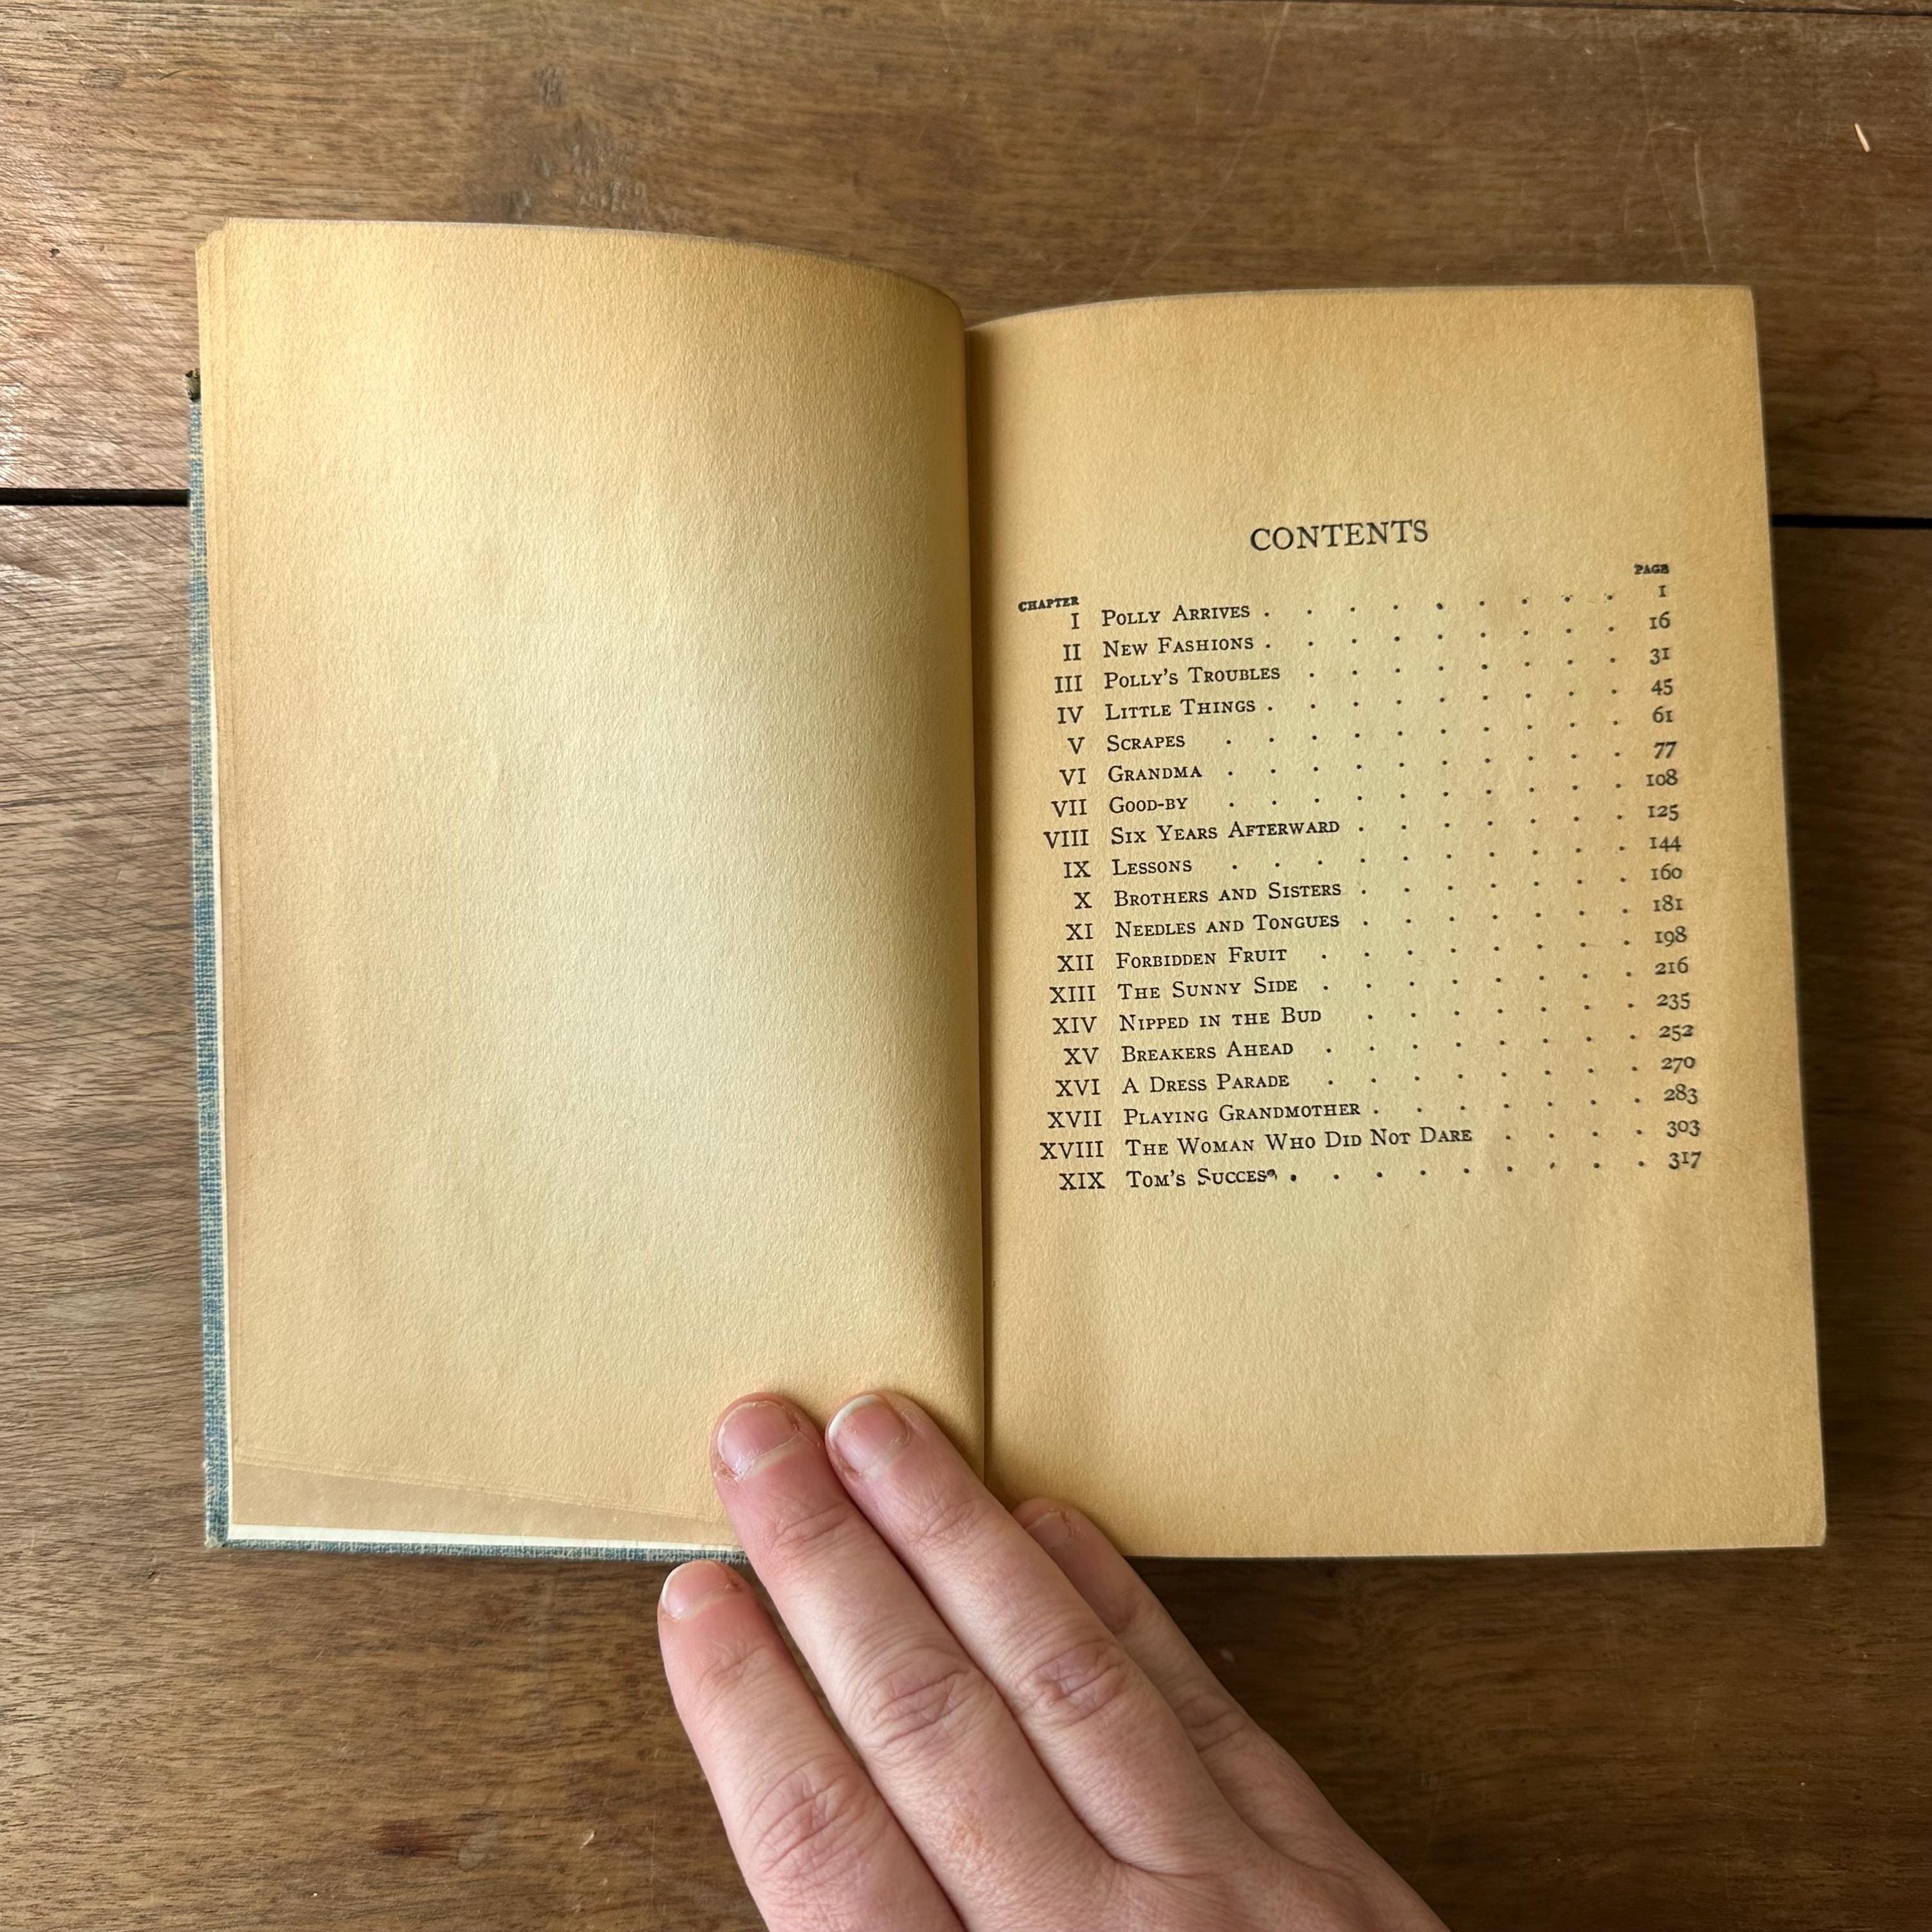 CONTENTS
CHAPTER PAGE
I POLLY ARRIVES . . . . . . . . . 1
II NEW FASHIONS . . . . . . . . . 16
III POLLY'S TROUBLES . . . . . . . . 31
IV LITTLE THINGS . . . . . . . . . 45
V SCRAPES . . . . . . . . . . 61
VI GRANDMA . . . . . . . . . . 77
VII GOOD-BY . . . . . . . . . . 108
VIII SIX YEARS AFTERWARD . . . . . . . 125
IX LESSONS . . . . . . . . . . 144
X BROTHERS AND SISTERS . . . . . . . 160
XI NEEDLES AND TONGUES . . . . . . . 181
XII FORBIDDEN FRUIT . . . . . . . . 198
XIII THE SUNNY SIDE . . . . . . . . 216
XIV NIPPED IN THE BUD . . . . . . . 235
XV BREAKERS AHEAD . . . . . . . . 252
XVI A DRESS PARADE . . . . . . . . 270
XVII PLAYING GRANDMOTHER . . . . . . . 283
XVIII THE WOMAN WHO DID NOT DARE . . . . 303
XIX TOM'S SUCCESS . . . . . . . . . 317